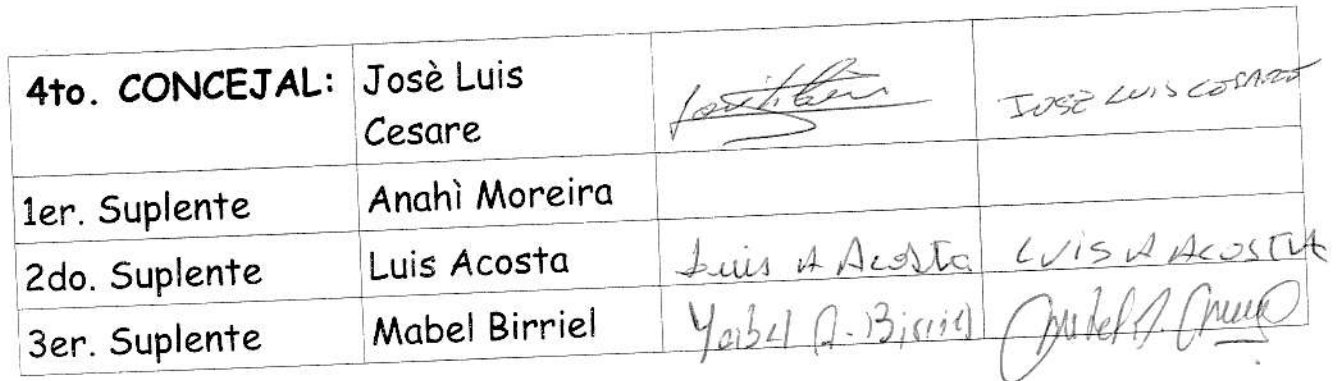 4to. CONCEJAL: Josè Luis
Cesare JOSÈ LUIS CESARE
1er. Suplente Anahì Moreira
2do. Suplente Luis Acosta Luis A Acosta LUIS A ACOSTA
3er. Suplente Mabel Birriel